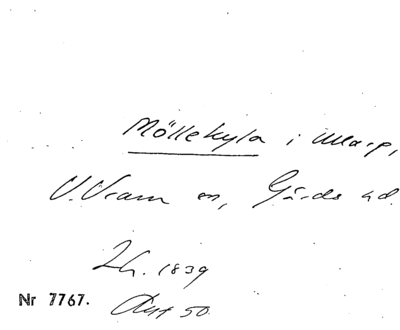 Möllekyla i Ullarp,
V. Vram sn, Gärds hd.
Lh. 1839
Nr 7767. Akt 50